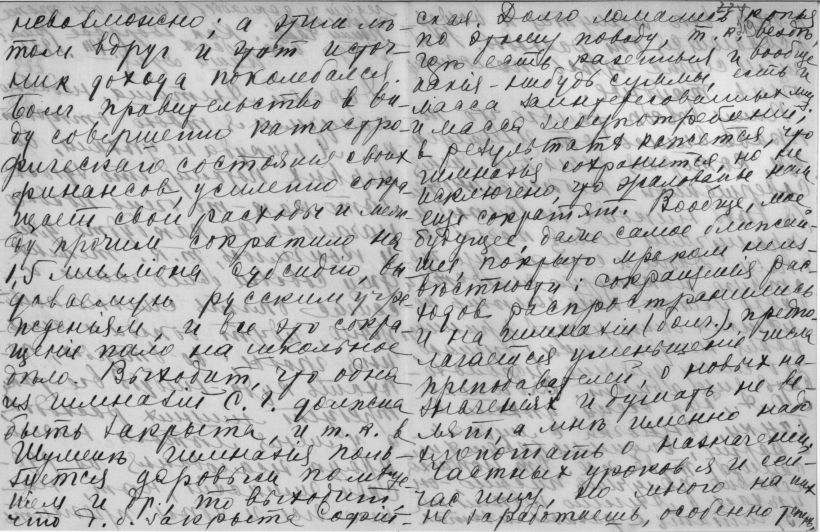 невозможно; а этим лѣ-
томъ вдругъ и этотъ источ-
никъ дохода поколебался.
Болг. правительство въ ви-
ду совершенно катастро-
фическаго состоянія своихъ
финансовъ, усиленно сокра-
щаетъ свои расходы и меж-
ду прочимъ сократило на
1,5 милліона субсидію, вы-
даваемую русскимъ учре-
жденіямъ, и все это сокра-
щеніе пало на школьное
дѣло. Выходитъ, что одна
изъ гимназій должна
быть закрыта, и т. к. въ
Шуменѣ гимназія поль-
зуется даровымъ помѣще-
ніемъ и др., то выходитъ
что д. б. закрыта Софій-
ская. Долго ломались копья
по этому поводу, т. к. вездѣ,
гдѣ есть казенныя и вообще
какія-нибудь суммы, есть и
масса заинтересованныхъ лиц
и масса злоупотребленій;
въ результатѣ кажется, что
гимназія сохранится, но не
исключено, что жалованье намъ
еще сократятъ. Вообще, мое
будущее, даже самое ближай-
шее, покрыто мракомъ неиз-
вѣстности: сокращенія рас-
ходовъ распространились
и на гимназіи (болг.), предпо-
лагается уменьшеніе числа
преподавателей, о новыхъ на-
значеніяхъ и думать не ве-
лятъ, а мнѣ именно надо
хлопотать о назначеніи.
Частныхъ уроковъ я и сей-
часъ ищу, но много на нихъ
не заработаешь, особенно